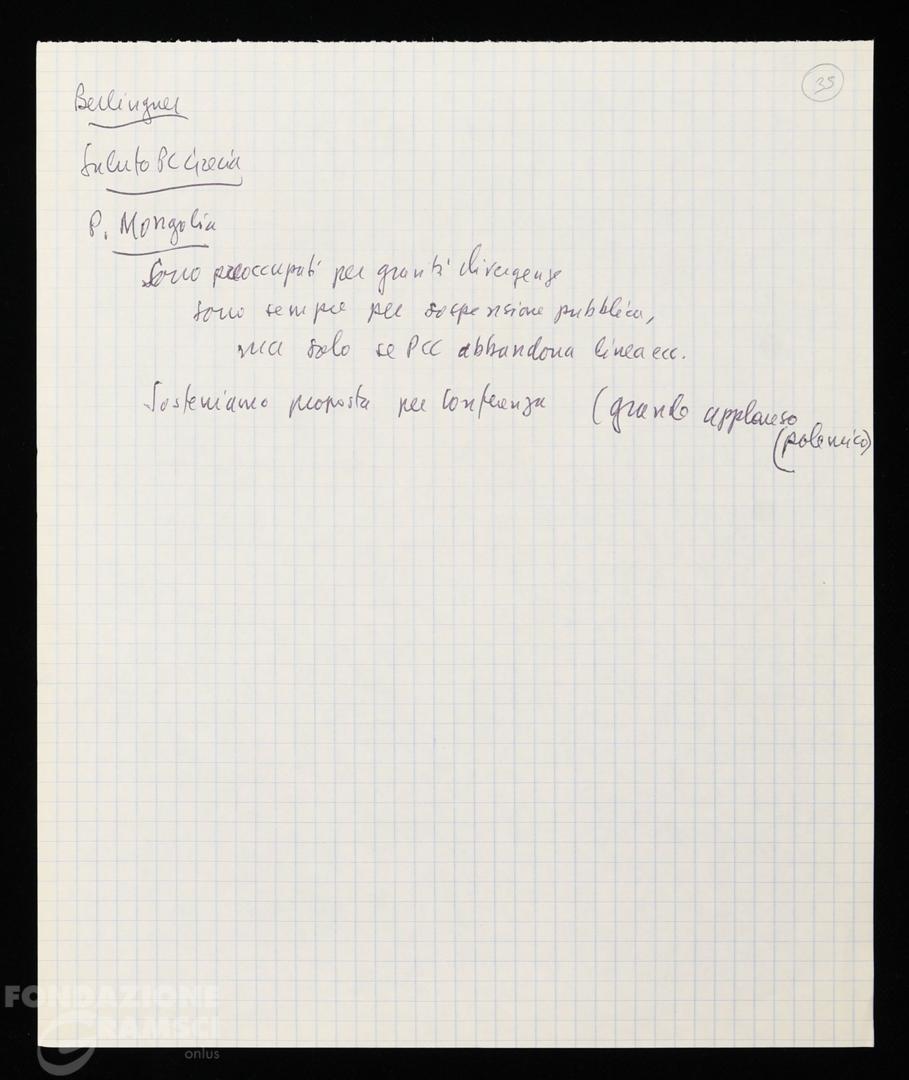 35
Berlinguer
Saluto PC Grecia
P. Mongolia
Sono preoccupati per gravità divergenze
sono sempre per sospensione pubblica,
ma solo se PCC abbandona linea ecc.
Sosteniamo proposta per Conferenza (grande applauso
(polemico)
FONDAZIONE
GRAMSCI
onlus